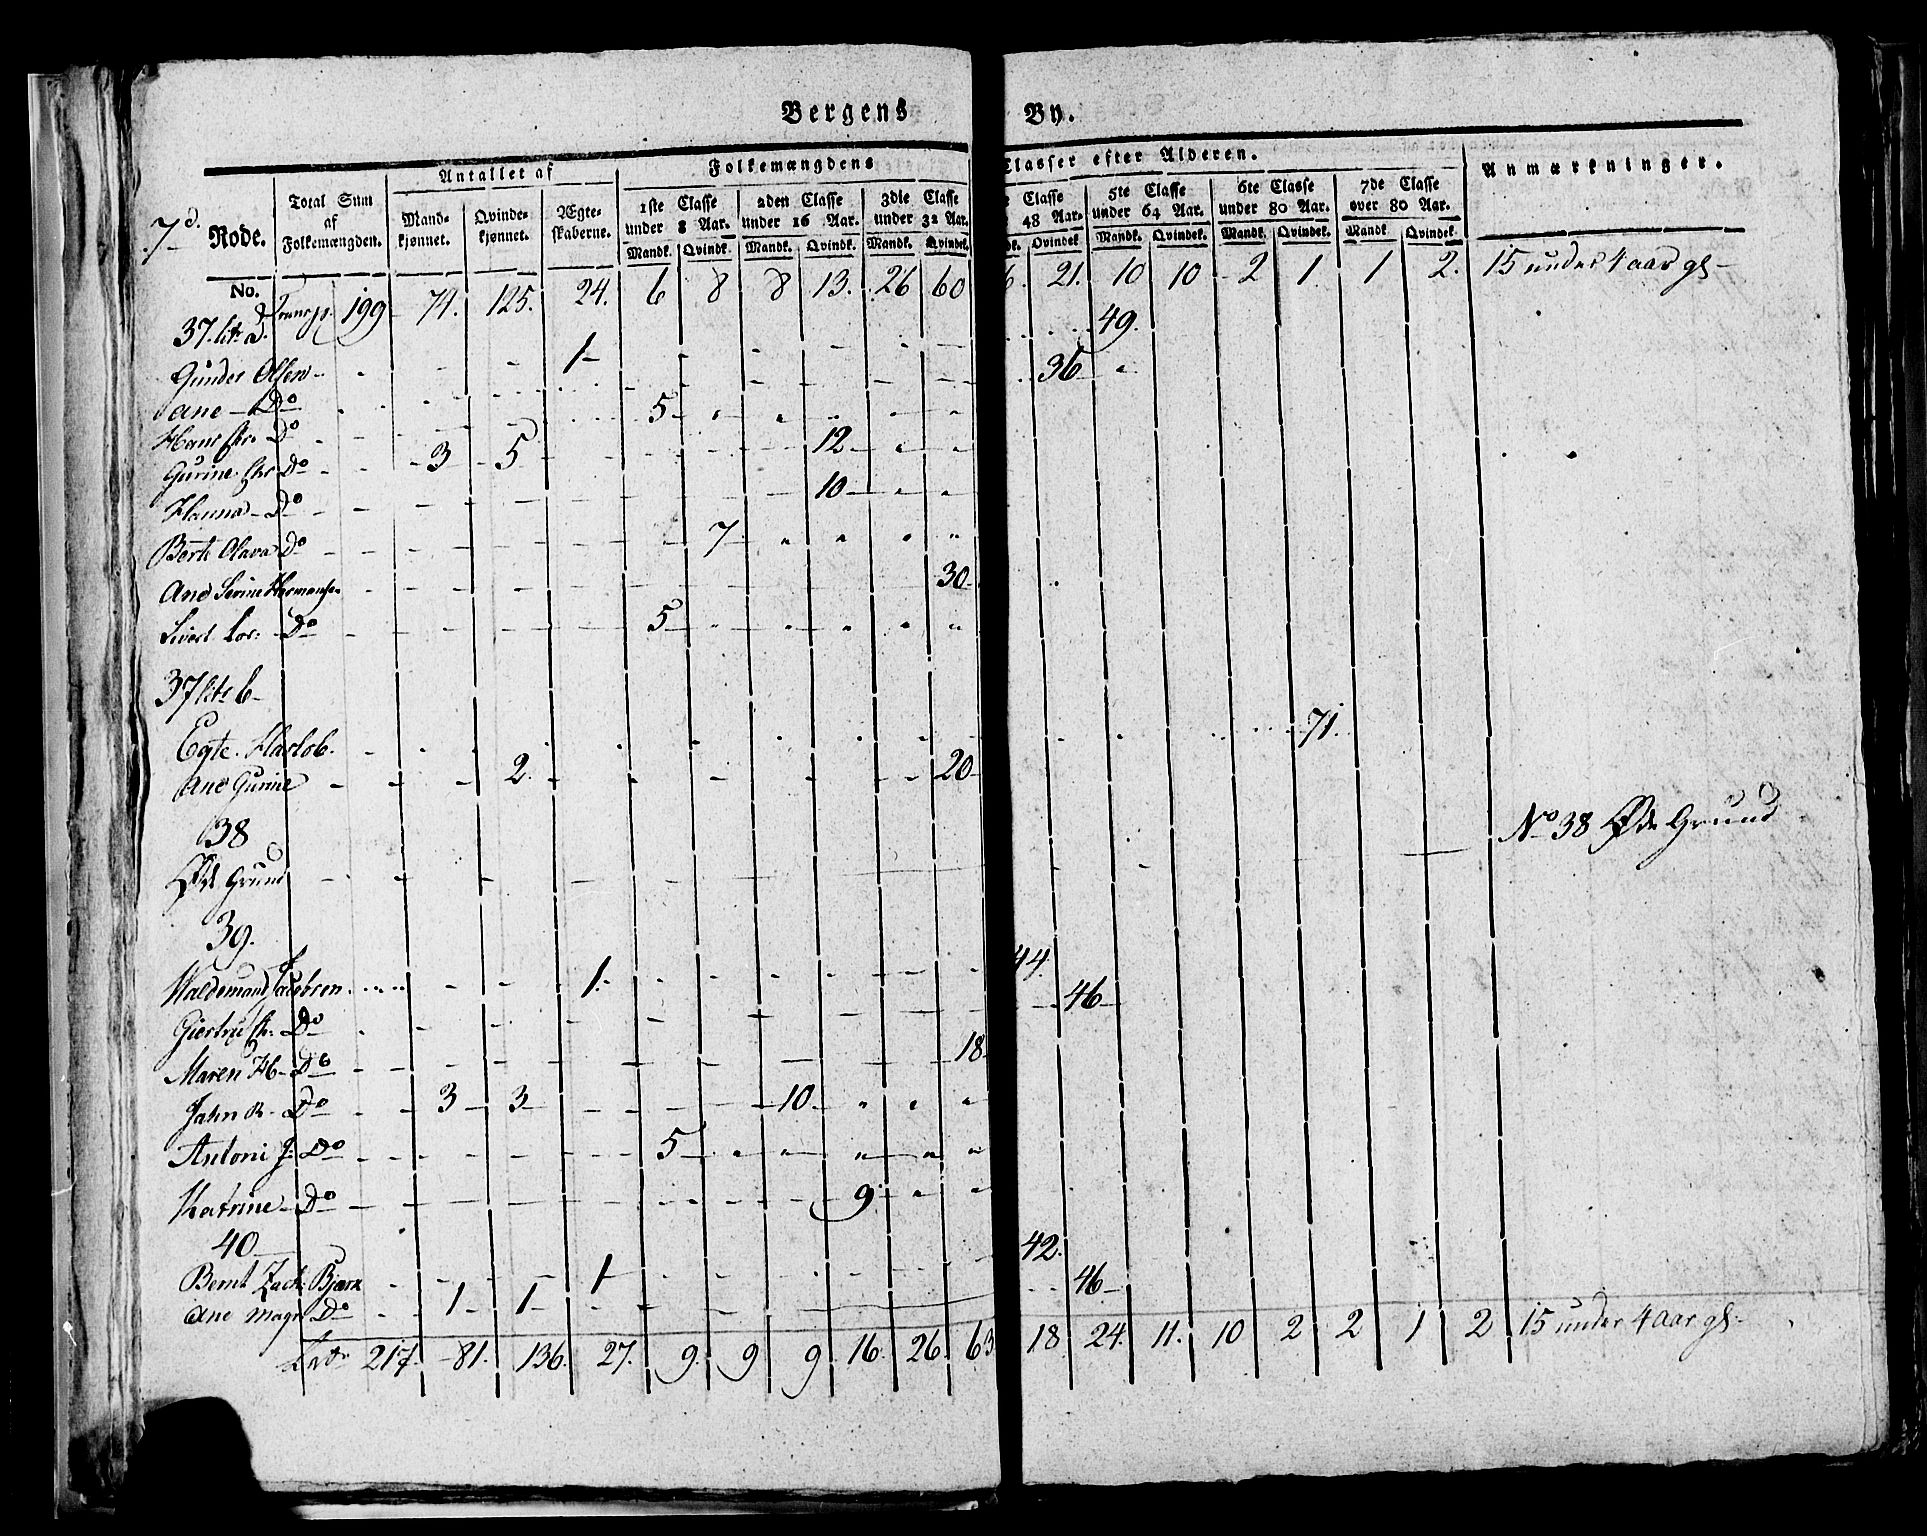 Bergens By.
7d. Rode. Total Sum af Folkemængden. Antallet af Mandkjønnet. Qvindekjønnet. Ægteskaberne. Folkemængdens Classer efter Alderen. Anmærkninger.
1ste Classe under 8 Aar. 2den Classe under 16 Aar. 3die Classe under 32 Aar. Classe 48 Aar. 5te Classe under 64 Aar. 6te Classe under 80 Aar. 7de Classe over 80 Aar.
Mandk. Qvindk. Mandk. Qvindk. Mandk. Qvindek. Qvindek. Mandk. Qvindk. Mandk. Qvindk. Mandk Qvindek.
No. Transp. 199 74. 125. 24. 6 8 8 13. 26 60 6. 21. 10 10 2 1 1 2. 15 under 4 aar gl
37. litr a.
Gunder Olsen 1 49.
ane Do 36
Hans Chr. Do 5
Gurine Chr Do 3 5 12
Hanna Do 10
Berte Olava Do 7
Ane Serine Hermansen 30
Sivert Lor: Do 5
37 litr b
Egte. Harlob. 71.
Ane Gurine 2. 20
38
Øde Grund No 38 Øde Grund
39.
Waldemand Jacobsen 1. 44.
Giertru Chr. Do 46
Maren H Do 18
Jahn R. Do 3 3 10
Antoni J: Do 5
Katrine Do 9
40
Bernt Zach: Bjørn 1 42.
ane Magr. Do 1 1 46
Ladr 217. 81. 136. 27. 9. 9 9 16 26 63 18 24. 11. 10 2 2 1 2 15 under 4 aar gl.